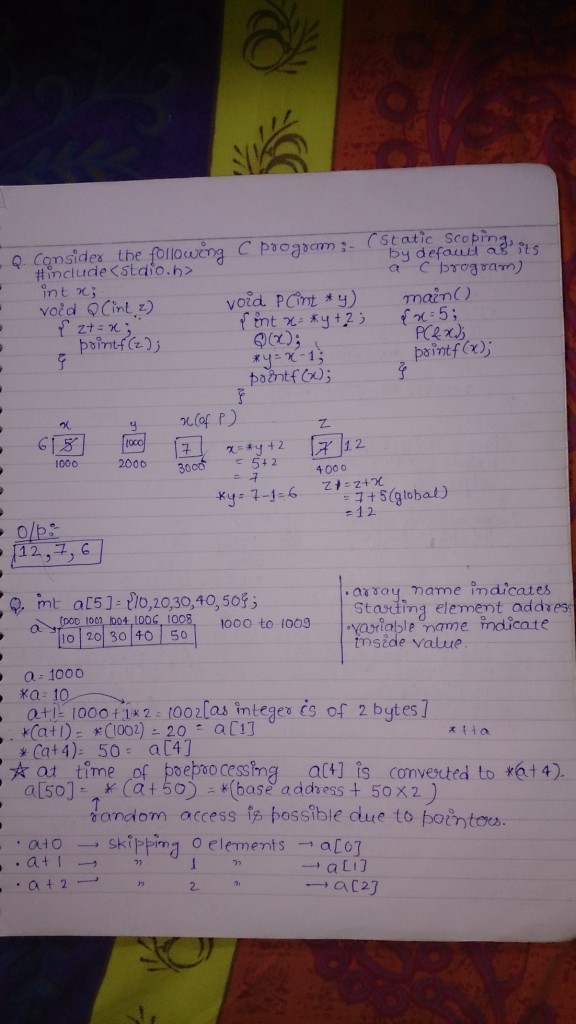 Q. Consider the following C program :- (Static Scoping,
by default as its
a C program)
#include<stdio.h>
int x;
void Q(int z)
{ z+=x;
printf(z);
}
void P(int *y)
{ int x=*y+2;
Q(x);
*y=x-1;
printf(x);
}
main()
{ x=5;
P(&x);
printf(x);
}
x y x(of P) z
6 5 1000 7 x=*y+2 7 12
1000 2000 3000 = 5+2 4000
= 7 z+=z+x
*y=7-1=6 =7+5(global)
=12
O/p:-
12, 7, 6
Q. int a[5]={10,20,30,40,50};
1000 1002 1004 1006 1008
a 10 20 30 40 50 1000 to 1009
• array name indicates
starting element address
• variable name indicate
inside value.
a=1000
*a=10
a+1= 1000+1*2=1002[as integer is of 2 bytes]
*(a+1)= *(1002) = 20 = a[1] *1+a
*(a+4)= 50= a[4]
☆ at time of preprocessing a[4] is converted to *(a+4).
a[50]= *(a+50) = *(base address + 50×2)
↑
random access is possible due to pointers.
• a+0 → skipping 0 elements → a[0]
• a+1 → " 1 " → a[1]
• a+2 → " 2 " → a[2]